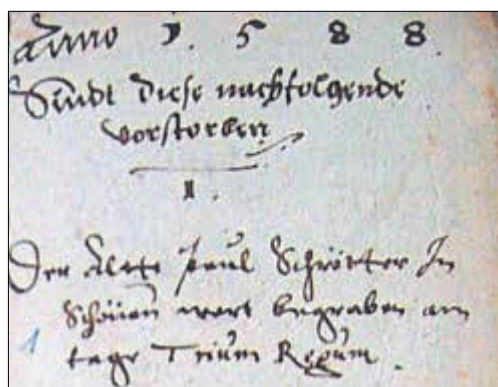 Anno 1 5 8 8.
Sindt diese nachfolgende
vorstorben
1.
Der Alte Paul Schrötter In
Schönaū wart begraben am
1 tage Triūm Regūm.